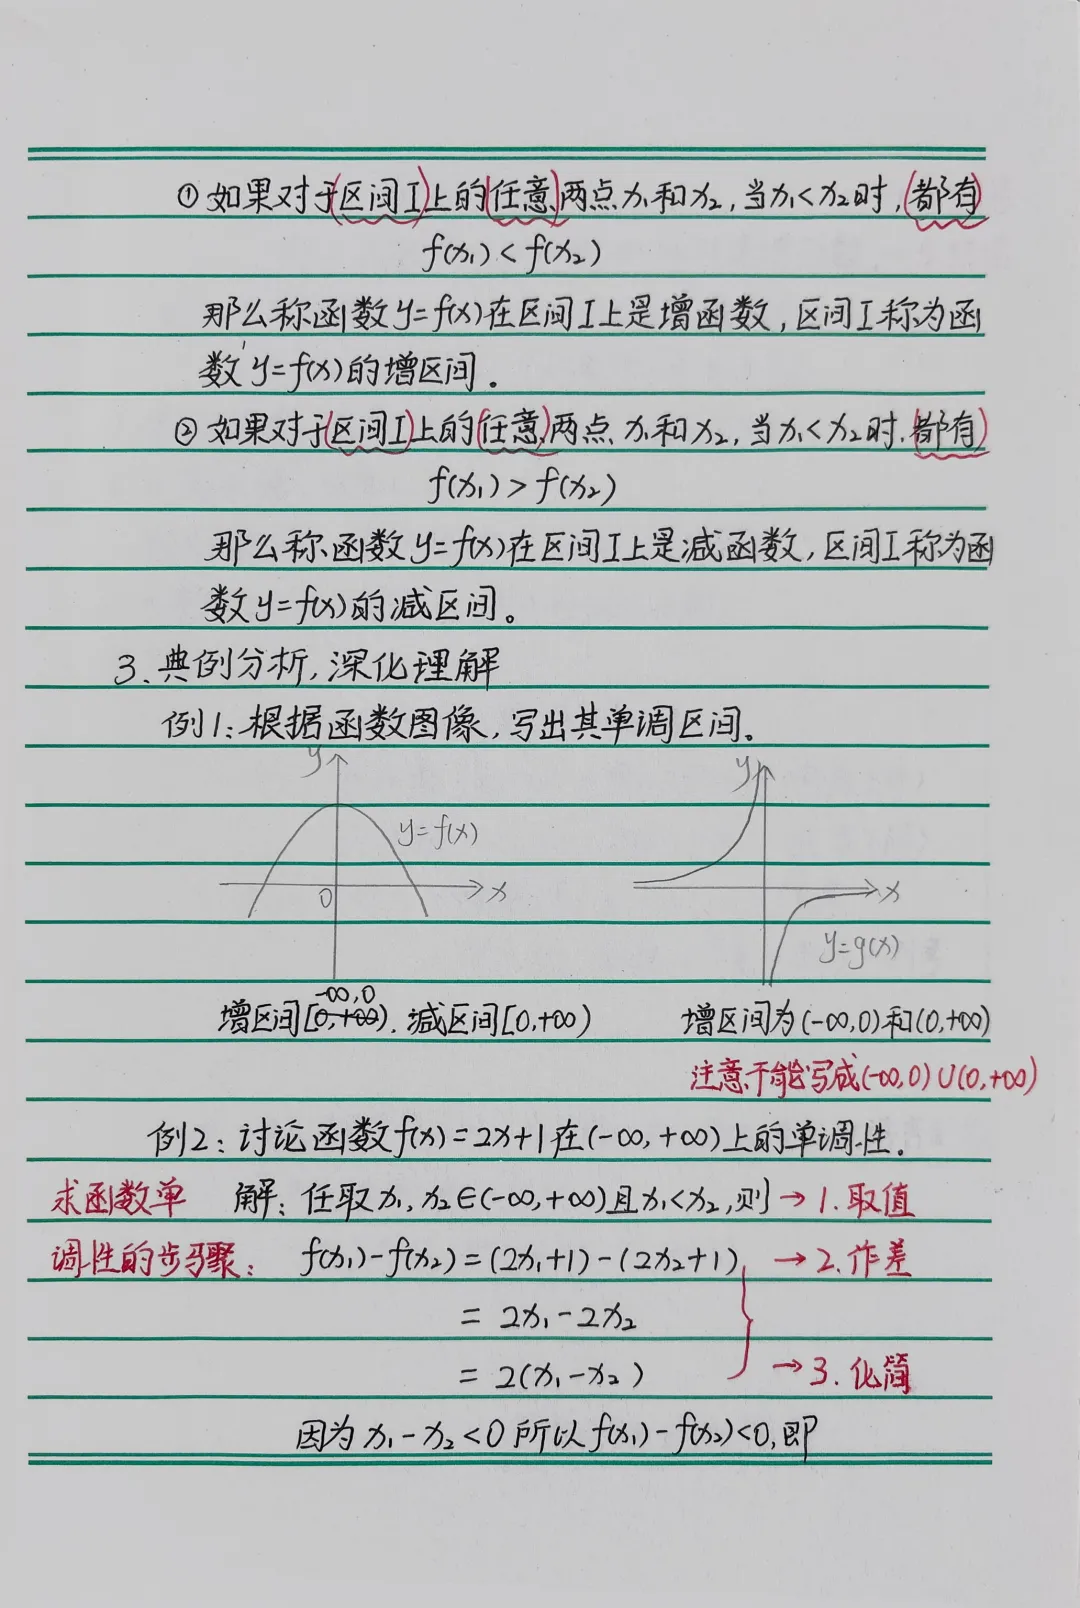 ①如果对于(区间I)上的(任意)两点x₁和x₂,当x₁<x₂时,(都有)
f(x₁)<f(x₂)
那么称函数y=f(x)在区间I上是增函数,区间I称为函
数y=f(x)的增区间。
②如果对于(区间I)上的(任意)两点x₁和x₂,当x₁<x₂时,(都有)
f(x₁)>f(x₂)
那么称函数y=f(x)在区间I上是减函数,区间I称为函
数y=f(x)的减区间。
3.典例分析,深化理解
例1:根据函数图像,写出其单调区间。
y y
y=f(x)
0 x x
y=g(x)
-∞,0
增区间[0,+∞).减区间[0,+∞) 增区间为(-∞,0)和(0,+∞)
注意不能写成(-∞,0)∪(0,+∞)
例2:讨论函数f(x)=2x+1在(-∞,+∞)上的单调性.
求函数单 解:任取x₁,x₂∈(-∞,+∞)且x₁<x₂,则→1.取值
调性的步骤: f(x₁)-f(x₂)=(2x₁+1)-(2x₂+1) →2.作差
=2x₁-2x₂
=2(x₁-x₂) →3.化简
因为x₁-x₂<0所以f(x₁)-f(x₂)<0,即